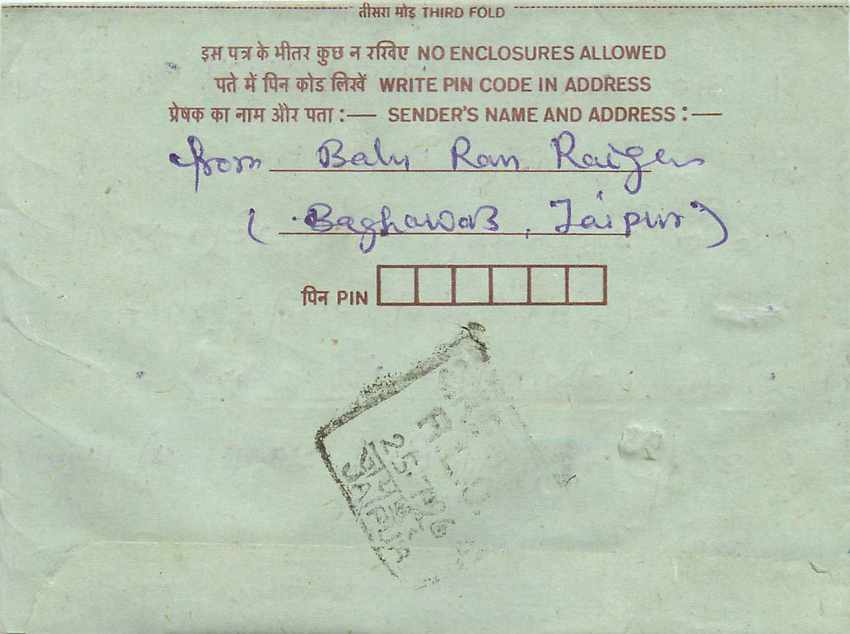 तीसरा मोड़ THIRD FOLD
इस पत्र के भीतर कुछ न रखिए NO ENCLOSURES ALLOWED
पते में पिन कोड लिखें WRITE PIN CODE IN ADDRESS
प्रेषक का नाम और पता :— SENDER'S NAME AND ADDRESS :—
from Balu Ram
( Baghawas, Jaipur )
पिन PIN
JAIPUR